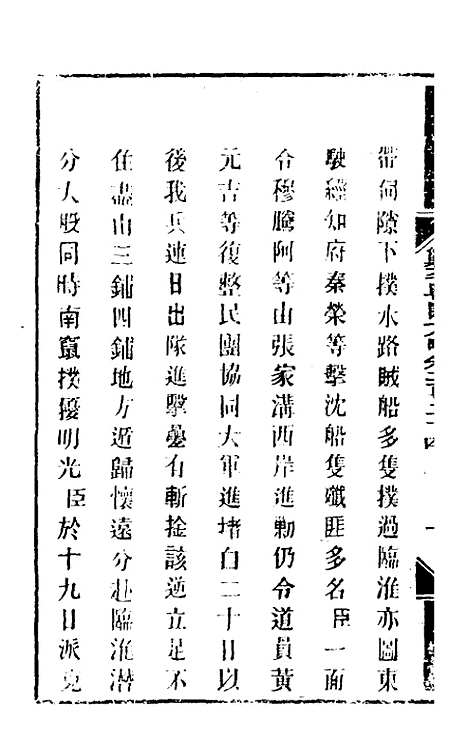 帶伺隙下撲水路賊船多隻撲過臨淮亦圖東
駛經知府秦榮等擊沈船隻殲匪多名臣一面
令穆騰阿等由張家溝西岸進勦仍令道員黃
元吉等復整民團協同大軍進堵自二十日以
後我兵連日出隊進擊疊有斬捦該逆立足不
住盡由三鋪四鋪地方遁歸懷遠分赴臨淮潛
分大股同時南竄撲擾明光臣於十九日派克